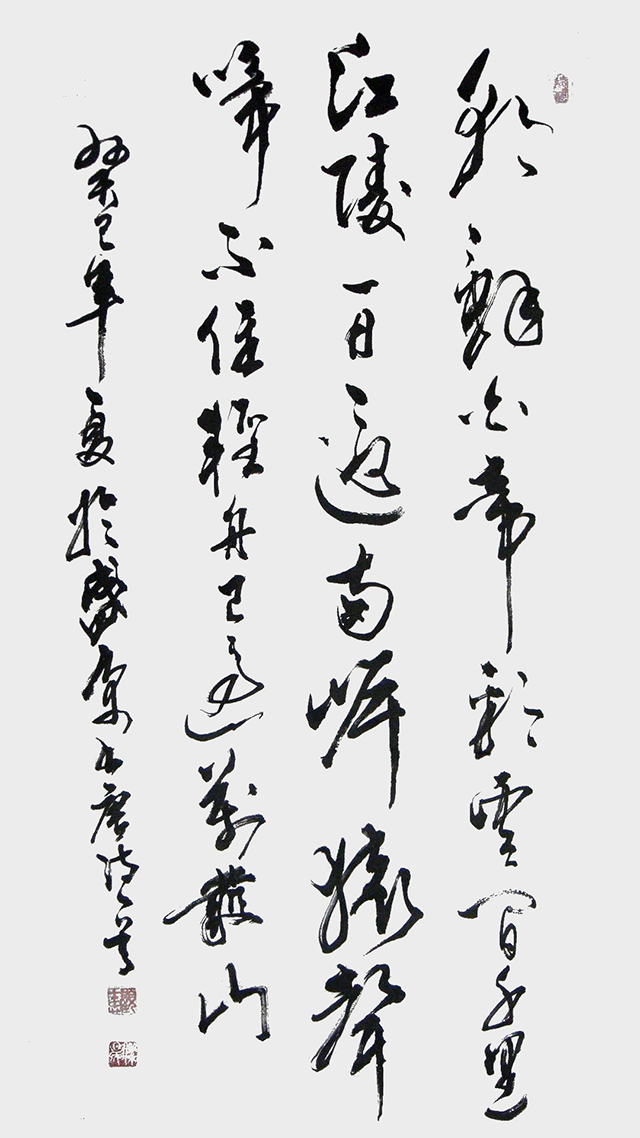 朝辭白帝彩雲間千里
江陵一日還兩岸猿聲
啼不住輕舟已過萬山
癸巳年夏於盛京書唐詩一首